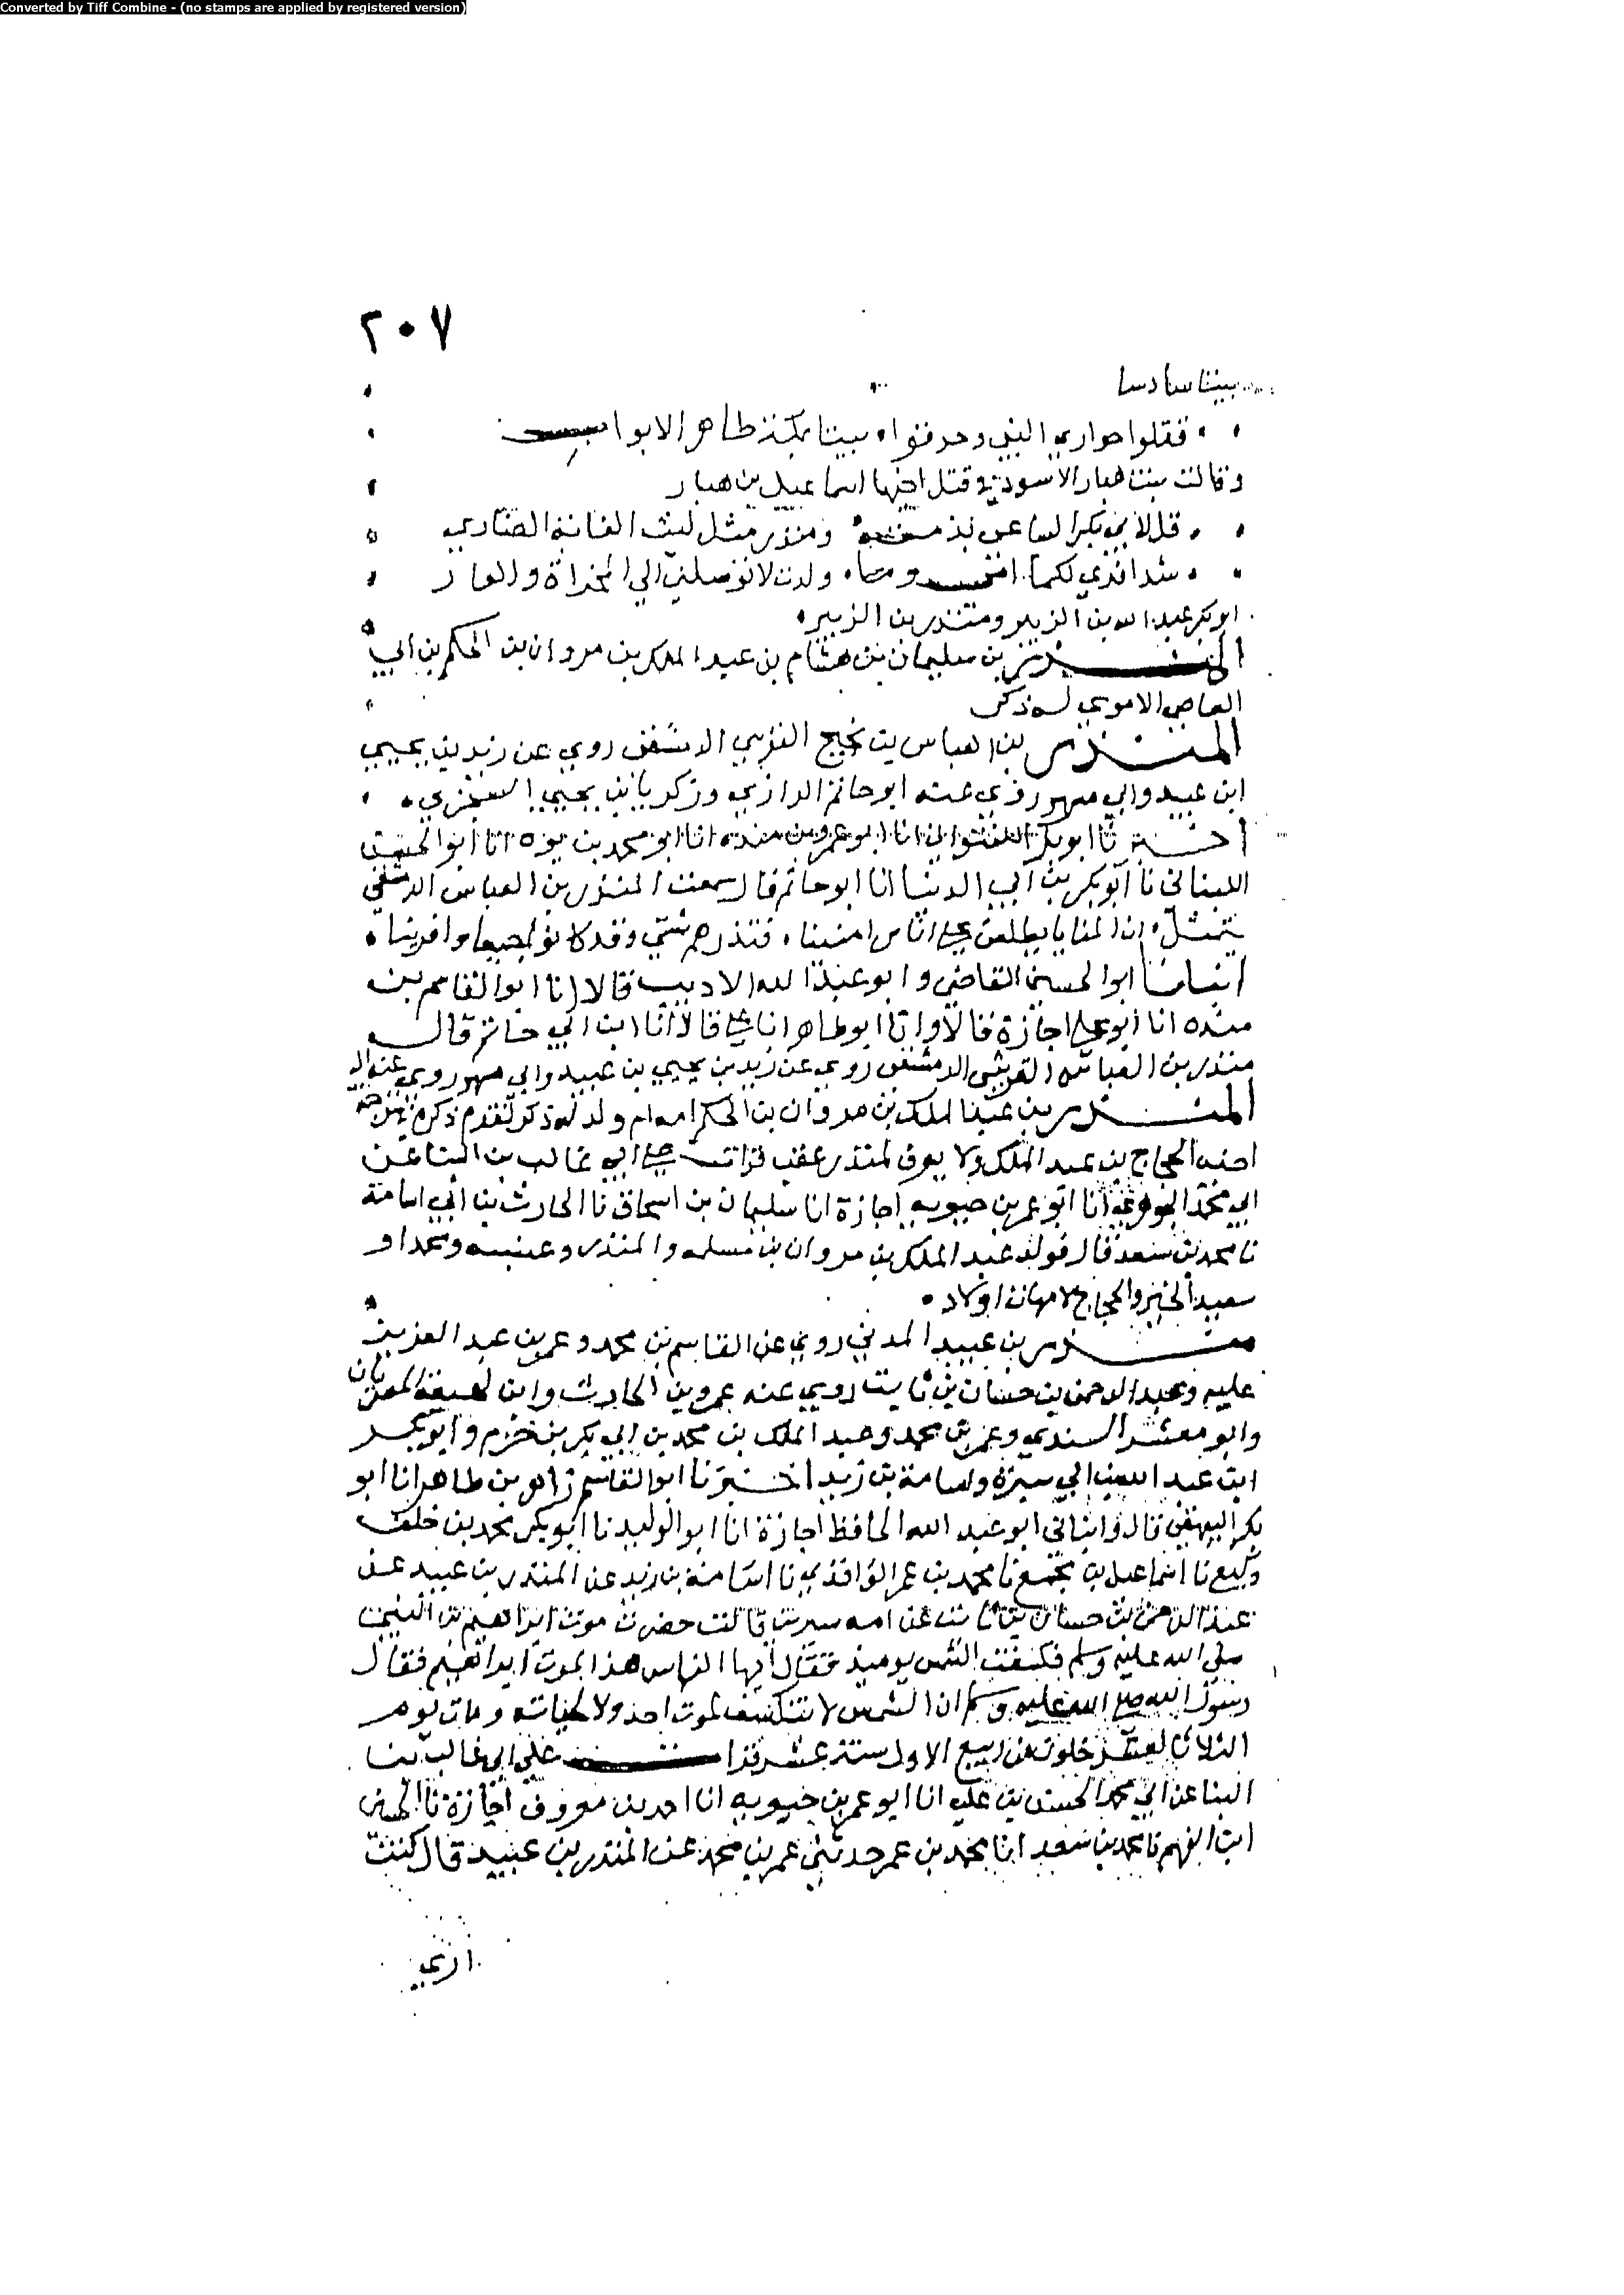 Converted by Tiff Combine - (no stamps are applied by registered version)
٢٠٧
بيتا سادسا
فقتلوا حواري النبي وحرقوا بيتا بمكة طاهر الابواب
وقالت بنت هبار الاسود في قتل اخيها اسماعيل بن هبار
قل لابي بكر الساعي ومنذر مثل ليث الغابة الضاري
شدا فدى لكما امي وما ولدت لا توصلن الى المخزاة والعار
ابو بكر عبد الله بن الزبير ومنذر بن الزبير
المنذر بن سليمان بن هشام بن عبد الملك بن مروان بن الحكم بن ابي
العاص الاموي له ذكر
المنذر بن العباس بن نجيح القرشي الدمشقي روى عن زيد بن يحيى
ابن عبيد وابي مسهر روى عنه ابو حاتم الرازي وزكريا بن يحيى السجزي
اخبرنا ابو بكر اللفتواني انا ابو عمرو بن منده انا ابو محمد بن يوه انا ابو الحسن
اللبناني نا ابو بكر بن ابي الدنيا انا ابو حاتم قال سمعت المنذر بن العباس الدمشقي
يتمثل ان المنايا يطلعن على اناس امنينا فتذرهم شتى وقد كانوا جميعا وافرينا
انبانا ابو الحسين القاضي وابو عبد الله الاديب قالا انا ابو القاسم بن
منده انا ابو علي اجازة قالا وانا ابو طاهر انا علي قالا انا ابن ابي حاتم قال
منذر بن العباس القرشي الدمشقي روى عن زيد بن يحيى بن عبيد وابي مسهر روى عنه ابي
المنذر بن عبد الملك بن مروان بن الحكم امه ام ولد له ذكر تقدم ذكره في ترجمة
اخيه الحجاج بن عبد الملك ولا يعرف لمنذر عقب قرات على ابي غالب بن البنا عن
ابي محمد الجوهري انا ابو عمر بن حيويه اجازة انا سليمان بن اسحاق نا الحارث بن ابي اسامة
نا محمد بن سعد قال فولد عبد الملك بن مروان بن مسلمه والمنذر وعنبسه ومحمدا و
سعيد الخير والحجاج لامهات اولاد
منذر بن عبيد المدني روى عن القاسم بن محمد وعمر بن عبد العزيز
عليه وعبد الرحمن بن حسان بن ثابت روى عنه عمرو بن الحارث وابن لهيعة المصريان
وابو معشر السندي وعمر بن محمد وعبد الملك بن محمد بن ابي بكر بن حزم وابو بكر
ابن عبد الله بن ابي سبرة واسامة بن زيد اخبرنا ابو القاسم زاهر بن طاهر انا ابو
بكر البيهقي قال وانباني ابو عبد الله الحافظ اجازة انا ابو الوليد نا ابو بكر محمد بن خلف
وكيع نا اسماعيل بن مجمع نا محمد بن عمر الواقدي نا اسامة بن زيد عن المنذر بن عبيد عن
عبد الرحمن بن حسان بن ثابت عن امه سيرين قالت حضرت موت ابراهيم بن النبي
صلى الله عليه وسلم فكسفت الشمس يوميذ فقال ايها الناس هذا لموت ابراهيم فقال
رسول الله صلى الله عليه وسلم ان الشمس لا تنكسف لموت احد ولا لحياته ومات يوم
الثلاثا لعشر خلون من ربيع الاول سنة عشر قرات على ابي غالب بن
البنا عن ابي محمد الحسن بن علي انا ابو عمر بن حيويه انا احمد بن معروف اجازة نا الحسين
ابن الفهم نا محمد بن سعد انا محمد بن عمر حدثني عمر بن محمد عن المنذر بن عبيد قال كنت
ارى